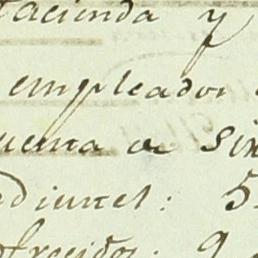 Hacienda y
empleados
cuenta de Sin
5
ofrecidos: 9